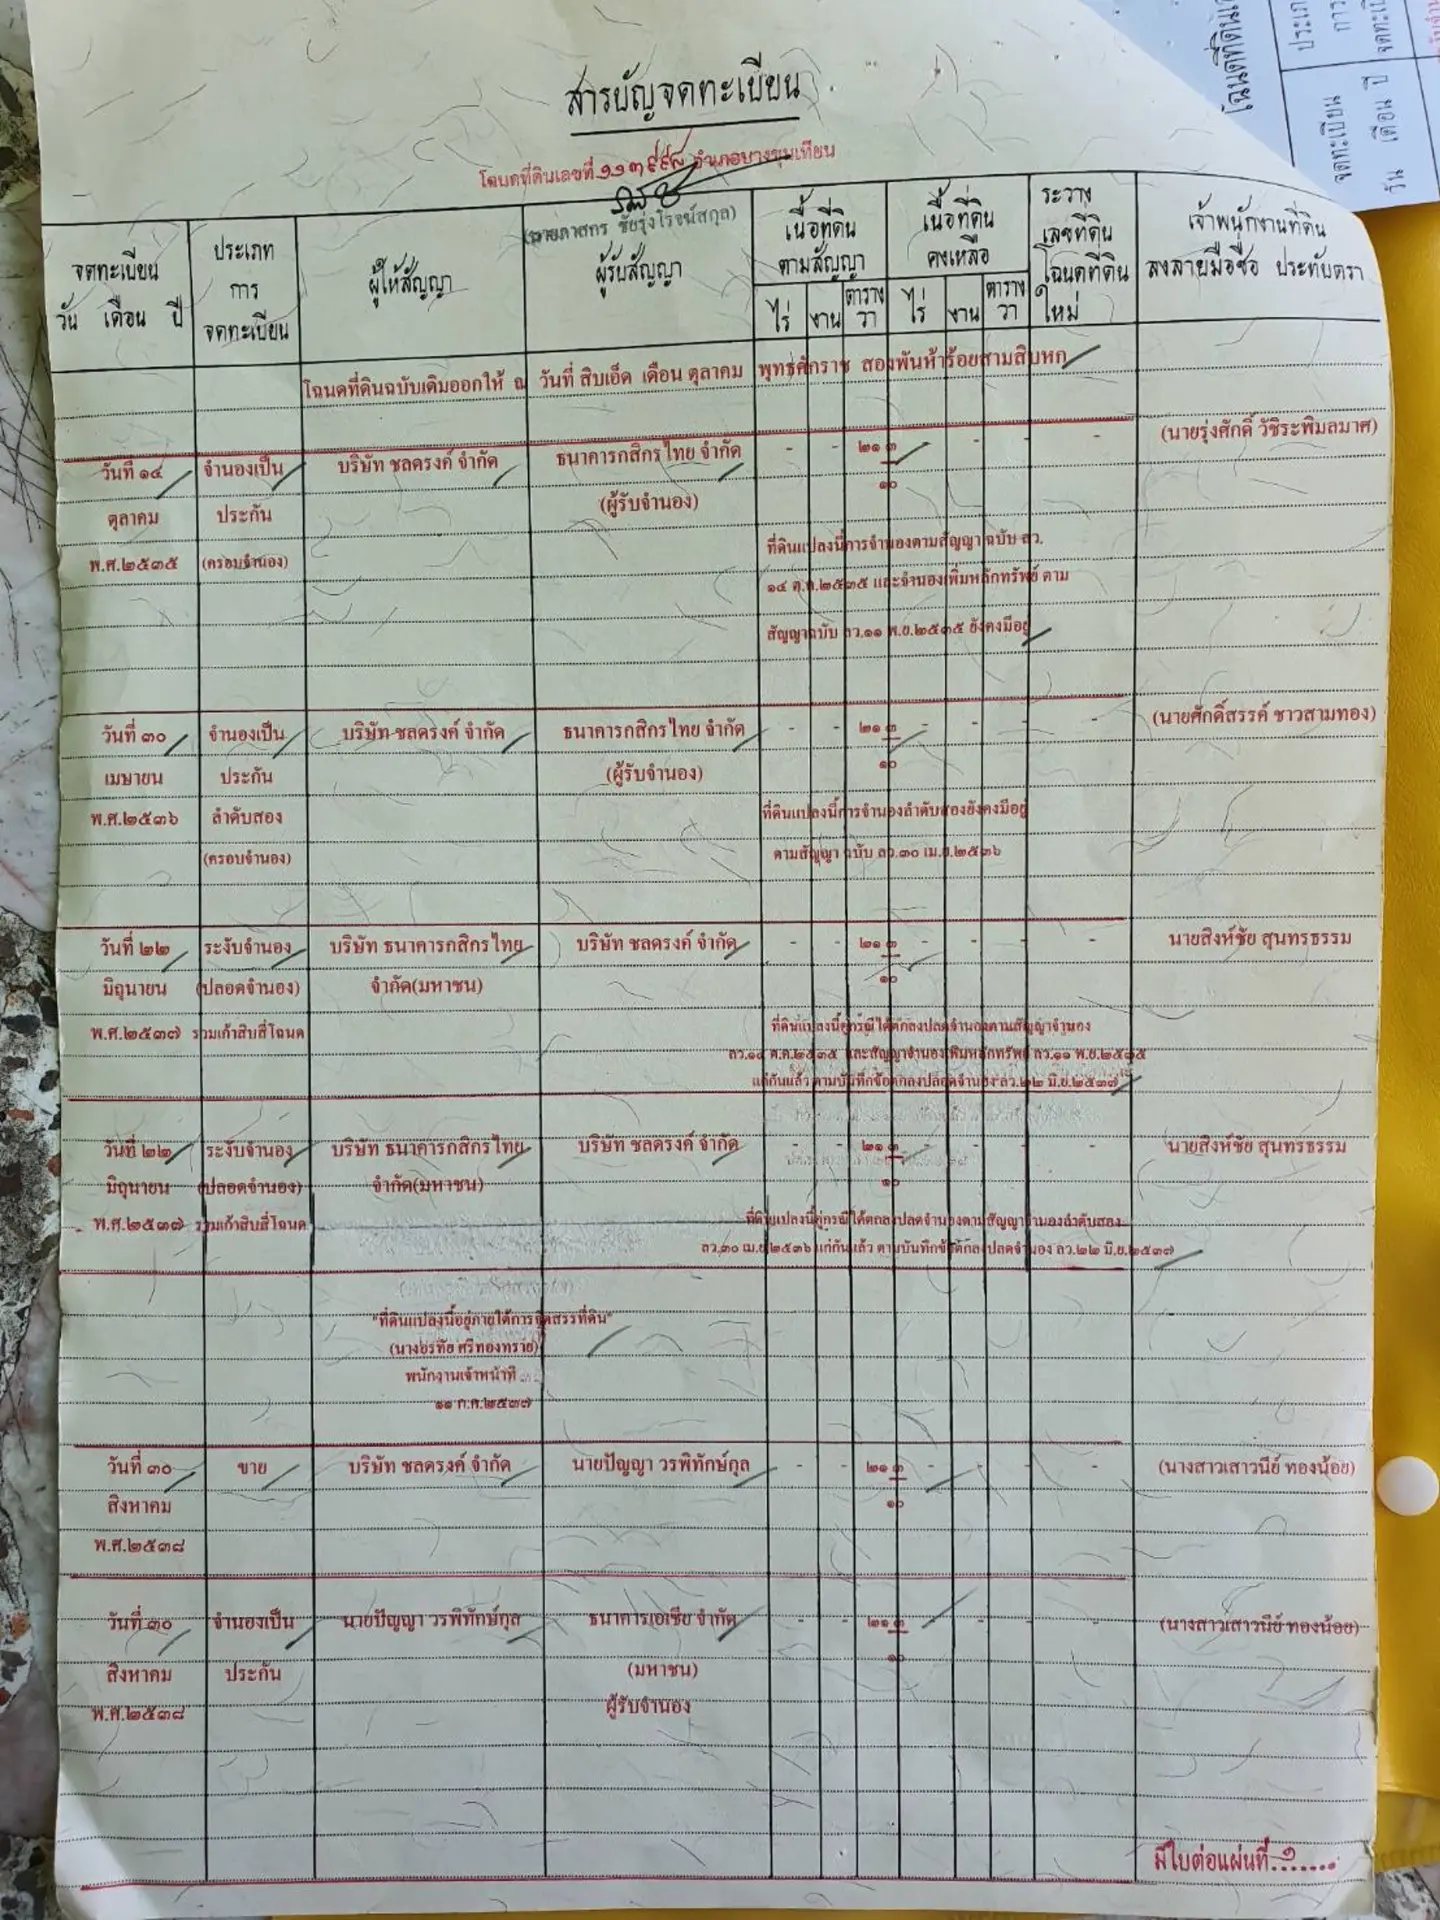 สารบัญจดทะเบียน
โฉนดที่ดินเลขที่ ๑๑๓๙๙๘ อำเภอบางขุนเทียน
(นายภาสกร ชัยรุ่งโรจน์สกุล)
จดทะเบียน
วัน เดือน ปี
ประเภท
การ
จดทะเบียน
ผู้ให้สัญญา
ผู้รับสัญญา
เนื้อที่ดิน
ตามสัญญา
ไร่ งาน ตาราง
วา
เนื้อที่ดิน
คงเหลือ
ไร่ งาน ตาราง
วา
ระวาง
เลขที่ดิน
โฉนดที่ดิน
ใหม่
เจ้าพนักงานที่ดิน
ลงลายมือชื่อ ประทับตรา
โฉนดที่ดินฉบับเดิมออกให้ ณ วันที่ สิบเอ็ด เดือน ตุลาคม พุทธศักราช สองพันห้าร้อยสามสิบหก
วันที่ ๑๔ จำนองเป็น บริษัท ชลดรงค์ จำกัด ธนาคารกสิกรไทย จำกัด - - ๒๑ ๓ - - - - (นายรุ่งศักดิ์ วัชิระพิมลมาศ)
๑๐
ตุลาคม ประกัน (ผู้รับจำนอง)
พ.ศ.๒๕๓๕ (ครอบจำนอง) ที่ดินแปลงนี้การจำนองตามสัญญา ฉบับ ลว.
๑๔ ต.ค.๒๕๓๕ และจำนองเพิ่มหลักทรัพย์ ตาม
สัญญาฉบับ ลว.๑๑ พ.ย.๒๕๓๕ ยังคงมีอยู่
วันที่ ๓๐ จำนองเป็น บริษัท ชลดรงค์ จำกัด ธนาคารกสิกรไทย จำกัด - - ๒๑ ๓ - - - - (นายศักดิ์สรรค์ ชาวสามทอง)
๑๐
เมษายน ประกัน (ผู้รับจำนอง)
พ.ศ.๒๕๓๖ ลำดับสอง ที่ดินแปลงนี้การจำนองลำดับสองยังคงมีอยู่
(ครอบจำนอง) ตามสัญญา ฉบับ ลว.๓๐ เม.ย.๒๕๓๖
วันที่ ๒๒ ระงับจำนอง บริษัท ธนาคารกสิกรไทย บริษัท ชลดรงค์ จำกัด - - ๒๑ ๓ - - - - นายสิงห์ชัย สุนทรธรรม
๑๐
มิถุนายน (ปลอดจำนอง) จำกัด(มหาชน)
พ.ศ.๒๕๓๗ รวมเก้าสิบสี่โฉนด ที่ดินแปลงนี้คู่กรณีได้ตกลงปลดจำนองตามสัญญาจำนอง
ลว.๑๔ ต.ค.๒๕๓๕ และสัญญาจำนองเพิ่มหลักทรัพย์ ลว.๑๑ พ.ย.๒๕๓๕
แก่กันแล้ว ตามบันทึกข้อตกลงปลดจำนอง ลว.๒๒ มิ.ย.๒๕๓๗
วันที่ ๒๒ ระงับจำนอง บริษัท ธนาคารกสิกรไทย บริษัท ชลดรงค์ จำกัด - - ๒๑ ๓ - - - - นายสิงห์ชัย สุนทรธรรม
๑๐
มิถุนายน (ปลอดจำนอง) จำกัด(มหาชน)
พ.ศ.๒๕๓๗ รวมเก้าสิบสี่โฉนด ที่ดินแปลงนี้คู่กรณีได้ตกลงปลดจำนองตามสัญญาจำนองลำดับสอง
ลว.๓๐ เม.ย.๒๕๓๖ แก่กันแล้ว ตามบันทึกข้อตกลงปลดจำนอง ลว.๒๒ มิ.ย.๒๕๓๗
"ที่ดินแปลงนี้อยู่ภายใต้การจัดสรรที่ดิน"
(นางอรทัย ศรีทองทราย)
พนักงานเจ้าหน้าที่
๑๑ ก.ค.๒๕๓๗
วันที่ ๓๐ ขาย บริษัท ชลดรงค์ จำกัด นายปัญญา วรพิทักษ์กุล - - ๒๑ ๓ - - - - (นางสาวเสาวนีย์ ทองน้อย)
๑๐
สิงหาคม
พ.ศ.๒๕๓๘
วันที่ ๓๐ จำนองเป็น นายปัญญา วรพิทักษ์กุล ธนาคารเอเซีย จำกัด - - ๒๑ ๓ - - - (นางสาวเสาวนีย์ ทองน้อย)
๑๐
สิงหาคม ประกัน (มหาชน)
พ.ศ.๒๕๓๘ ผู้รับจำนอง
มีใบต่อแผ่นที่..๑.....